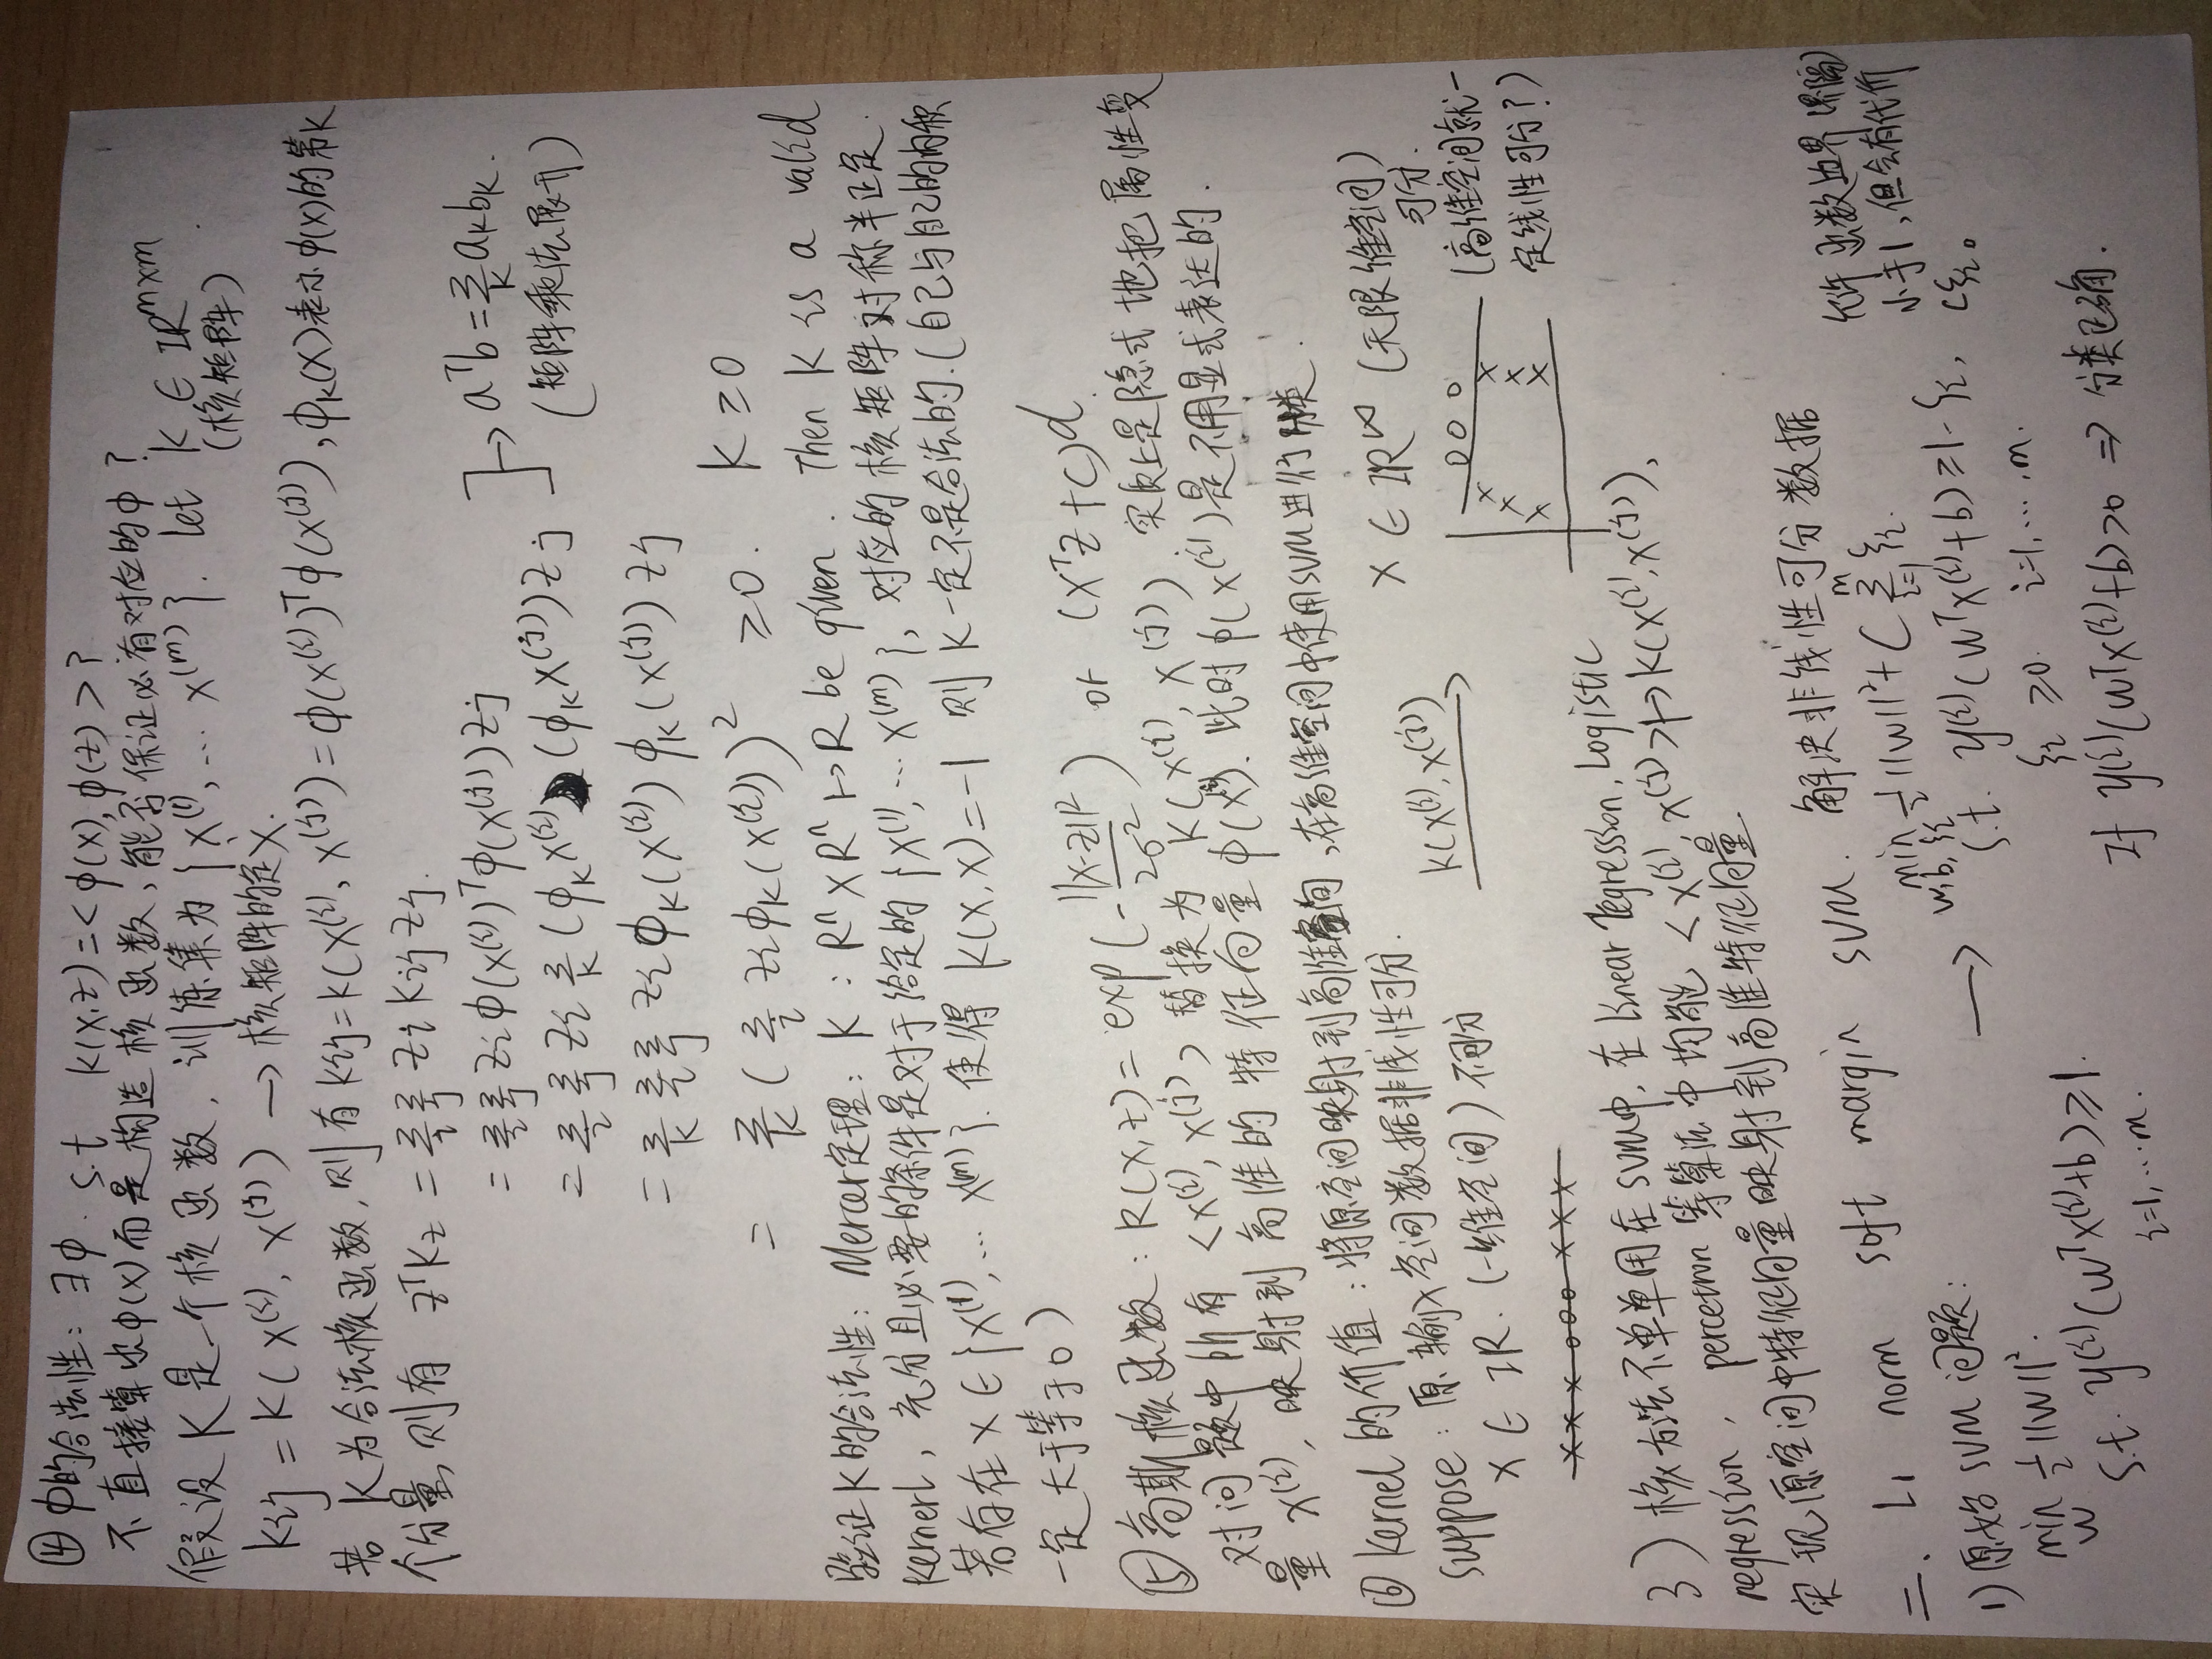 ④ φ的合法性: ∃φ. s.t K(x,z)=<φ(x),φ(z)>?
不直接算出φ(x)而是构造核函数,能否保证必有对应的φ?
假设K是一个核函数,训练集为{x⁽¹⁾,… x⁽ᵐ⁾}. let K ∈ ℝᵐˣᵐ
(核矩阵)
Kij = K(x⁽ⁱ⁾, x⁽ʲ⁾) → 核矩阵的定义.
若 K为合法核函数,则有Kij=K(x⁽ⁱ⁾, x⁽ʲ⁾)=φ(x⁽ⁱ⁾)ᵀφ(x⁽ʲ⁾),φₖ(x)表示φ(x)的第K
个分量,则有 zᵀKz = Σᵢ Σⱼ zᵢ Kij zⱼ.
= Σᵢ Σⱼ zᵢ φ(x⁽ⁱ⁾)ᵀφ(x⁽ʲ⁾) zⱼ → aᵀb = Σₖ aₖbₖ.
= Σᵢ Σⱼ zᵢ Σₖ (φₖ x⁽ⁱ⁾) (φₖ x⁽ʲ⁾) zⱼ (矩阵乘法展开)
= Σₖ Σᵢ Σⱼ zᵢ φₖ(x⁽ⁱ⁾) φₖ(x⁽ʲ⁾) zⱼ
= Σₖ ( Σᵢ zᵢ φₖ(x⁽ⁱ⁾) )² ≥0. K ≥0
验证K的合法性: Mercer定理: K : Rⁿ×Rⁿ ↦ R be given. Then K is a valid
kernerl, 充分且必要的条件是对于给定的{x⁽¹⁾,… x⁽ᵐ⁾}, 对应的核矩阵对称半正定.
若存在 x∈{x⁽¹⁾,… x⁽ᵐ⁾}. 使得 K(x,x)=-1 则 K一定不是合法的.(自己与自己的内积
一定大于等于0)
⑤ 高斯核函数: K(x,z)=exp(-||x-z||²/2σ²) or (xᵀz+c)ᵈ.
对问题中所有<x⁽ⁱ⁾,x⁽ʲ⁾>替换为K(x⁽ⁱ⁾,x⁽ʲ⁾). 实质上是隐式地把属性变
量x⁽ⁱ⁾,映射到高维的特征向量φ(x⁽ⁱ⁾). 此时φ(x⁽ⁱ⁾)是不用显式表达的.
⑥ kernel的价值: 将原空间映射到高维空间,在高维空间中使用SVM进行分类.
suppose: 原输入空间数据非线性可分.
x ∈ ℝ. (一维空间)不可分
K(x⁽ⁱ⁾,x⁽ʲ⁾) →
x ∈ ℝ^∞ (无限维空间)
可分.
× × × o o o × × ×
o o o
× ×
× ×
× ×
(高维空间就一
定线性可分?)
3) 核方法不单单用在SVM中, 在linear regression, Logistic
regression, percetron 等算法中均能 <x⁽ⁱ⁾,x⁽ʲ⁾> ↦ K(x⁽ⁱ⁾,x⁽ʲ⁾),
实现原空间中特征向量映射到高维特征向量.
二、L1 norm soft margin SVM. 解决非线性可分数据
1) 原始SVM问题:
min_w ½||w||².
s.t. y⁽ⁱ⁾(wᵀx⁽ⁱ⁾+b)≥1.
i=1,…m.
→
min_{w,b,ξᵢ} ½||w||²+C Σᵢ₌₁ᵐ ξᵢ.
s.t. y⁽ⁱ⁾(wᵀx⁽ⁱ⁾+b)≥1-ξᵢ,
ξᵢ ≥0. i=1,…,m.
允许函数边界(界隔)
小于1,但会有代价
Cξᵢ。
If y⁽ⁱ⁾(wᵀx⁽ⁱ⁾+b)>0 ⇒ 分类正确.